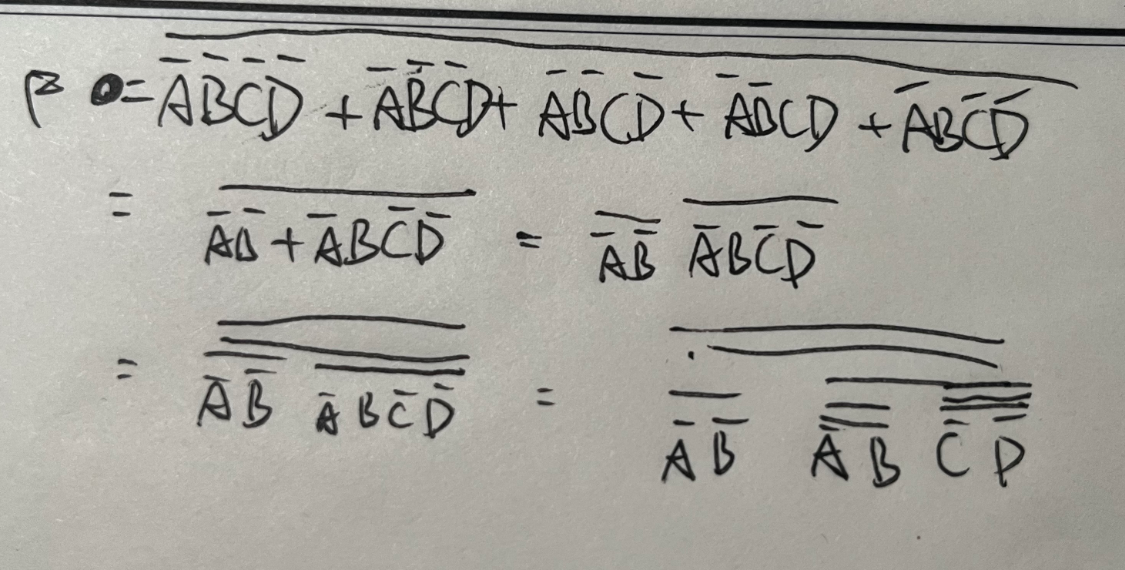 P2 0 = \overline{\bar{A}\bar{B}\bar{C}\bar{D} + \bar{A}\bar{B}\bar{C}D + \bar{A}\bar{B}C\bar{D} + \bar{A}\bar{B}CD + \bar{A}B\bar{C}\bar{D}}
= \overline{\bar{A}\bar{B} + \bar{A}B\bar{C}\bar{D}} = \overline{\bar{A}\bar{B}} \overline{\bar{A}B\bar{C}\bar{D}}
= \overline{\overline{\overline{\bar{A}\bar{B}} \overline{\bar{A}B\bar{C}\bar{D}}}} = \overline{\overline{\overline{\bar{A}\bar{B}} \overline{\overline{\overline{\bar{A}B}} \overline{\overline{\bar{C}\bar{D}}}}}}